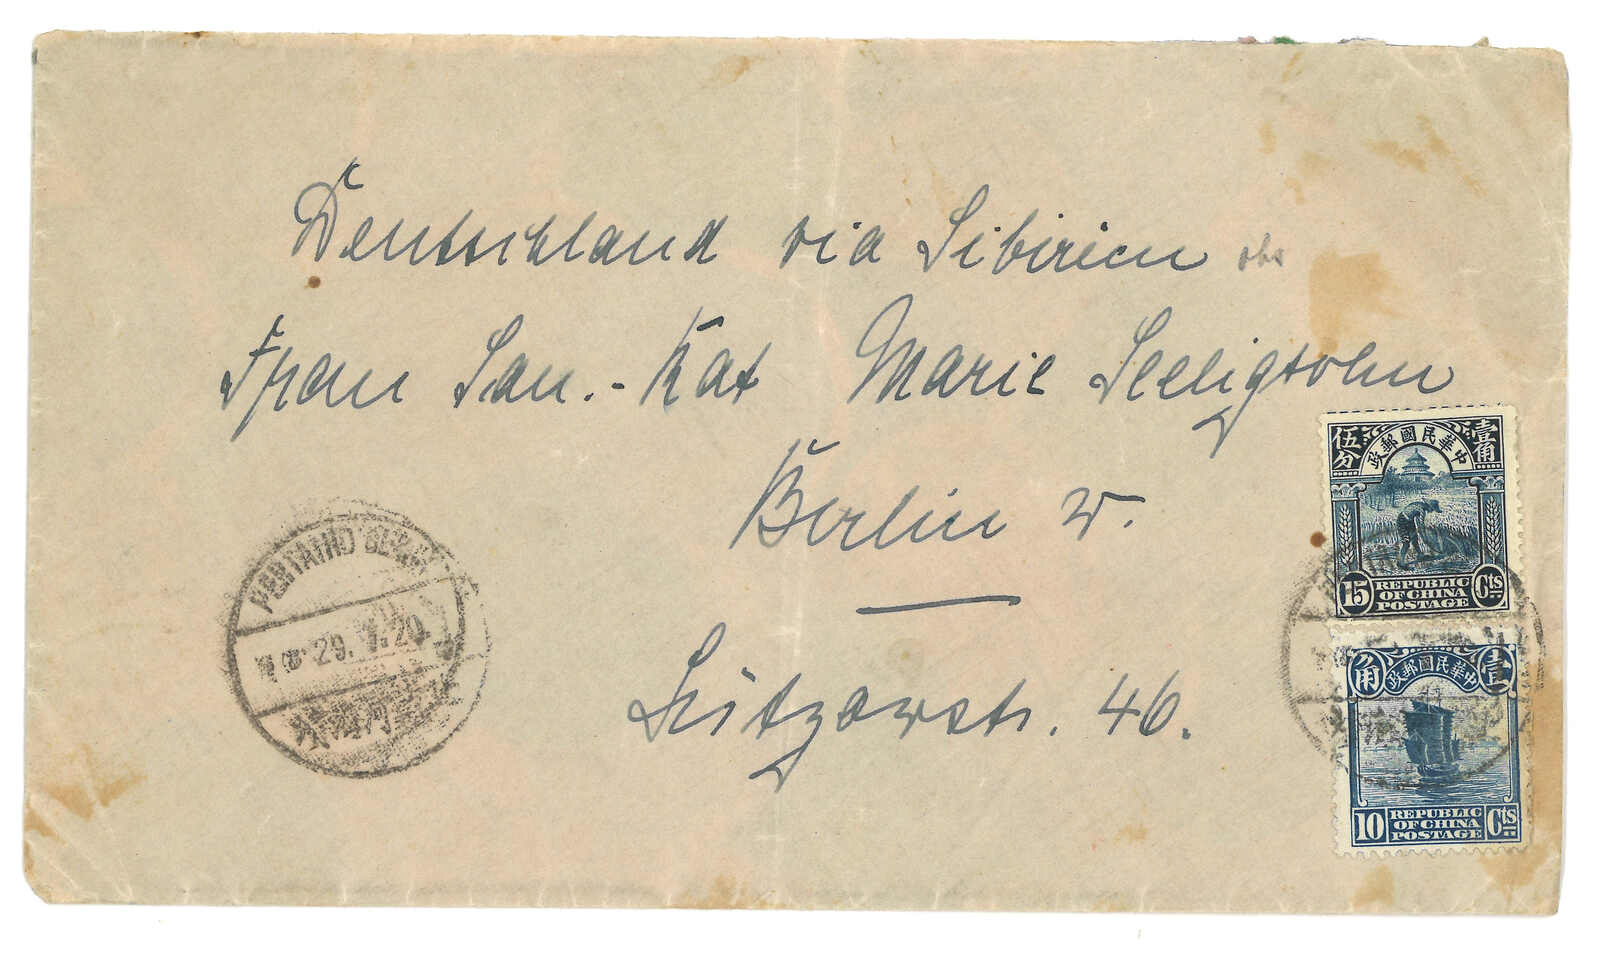 Deutschland via Sibirien
Frau San.-Rat Marie Seeligsohn
Berlin W.
Lützowstr. 46.
PEHTAIHO BEACH
29. 7. 20
中華民國郵政
壹角
伍分
15
REPUBLIC
OF CHINA
POSTAGE
Cts
中華民國郵政
壹
角
10
REPUBLIC
OF CHINA
POSTAGE
Cts